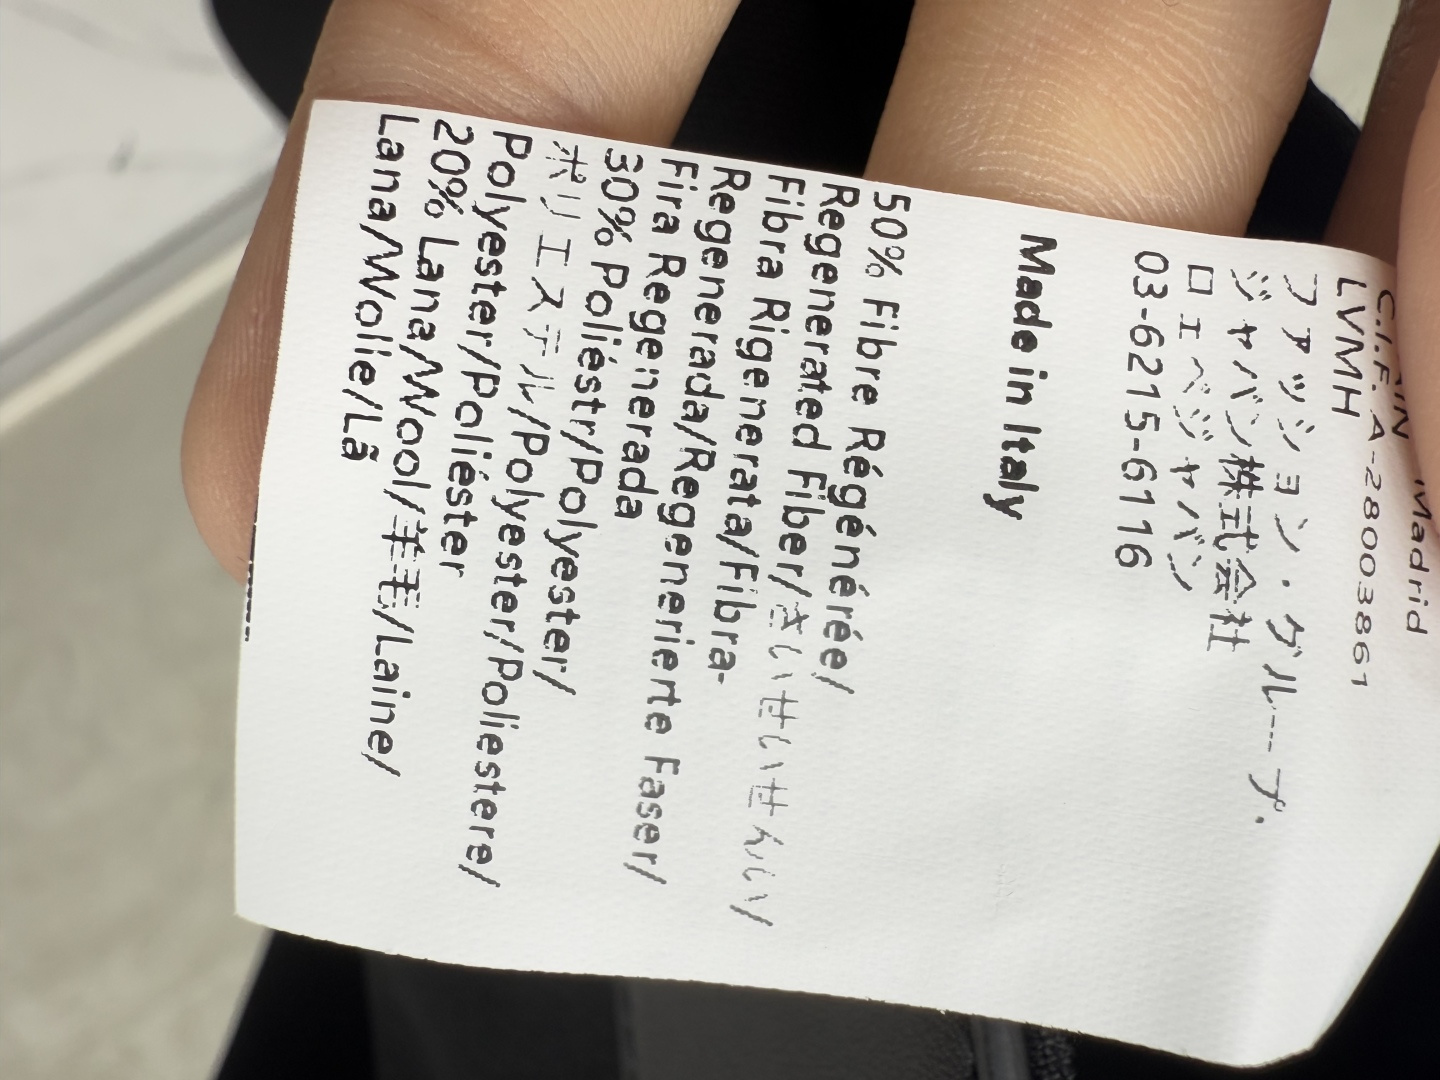 Madrid
C.I.F. A-28003861
LVMH
ファッション・グループ・
ジャパン株式会社
ロエベジャパン
03-6215-6116
Made in Italy
50% Fibre Régénérée/
Regenerated Fiber/さいせいせんい/
Fibra Rigenerata/Fibra-
Regenerada/Regenerierte Faser/
Fira Regenerada
30% Poliéstr/Polyester/
ポリエステル/Polyester/Poliestere/
Polyester/Poliéster
20% Lana/Wool/羊毛/Laine/
Lana/Wolle/Lã